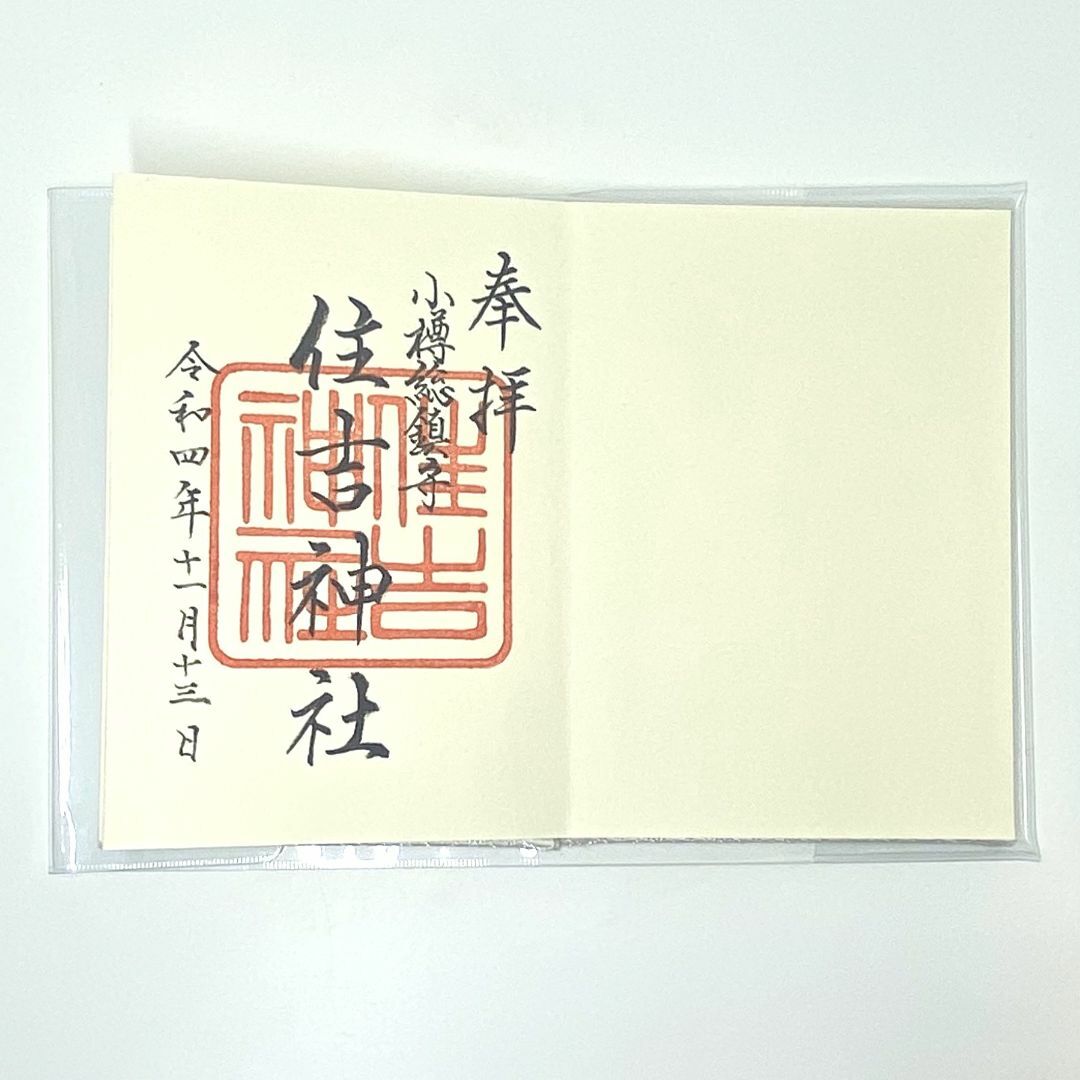 奉拝
小樽総鎮守
住吉神社
令和四年十一月十三日
住吉
神社